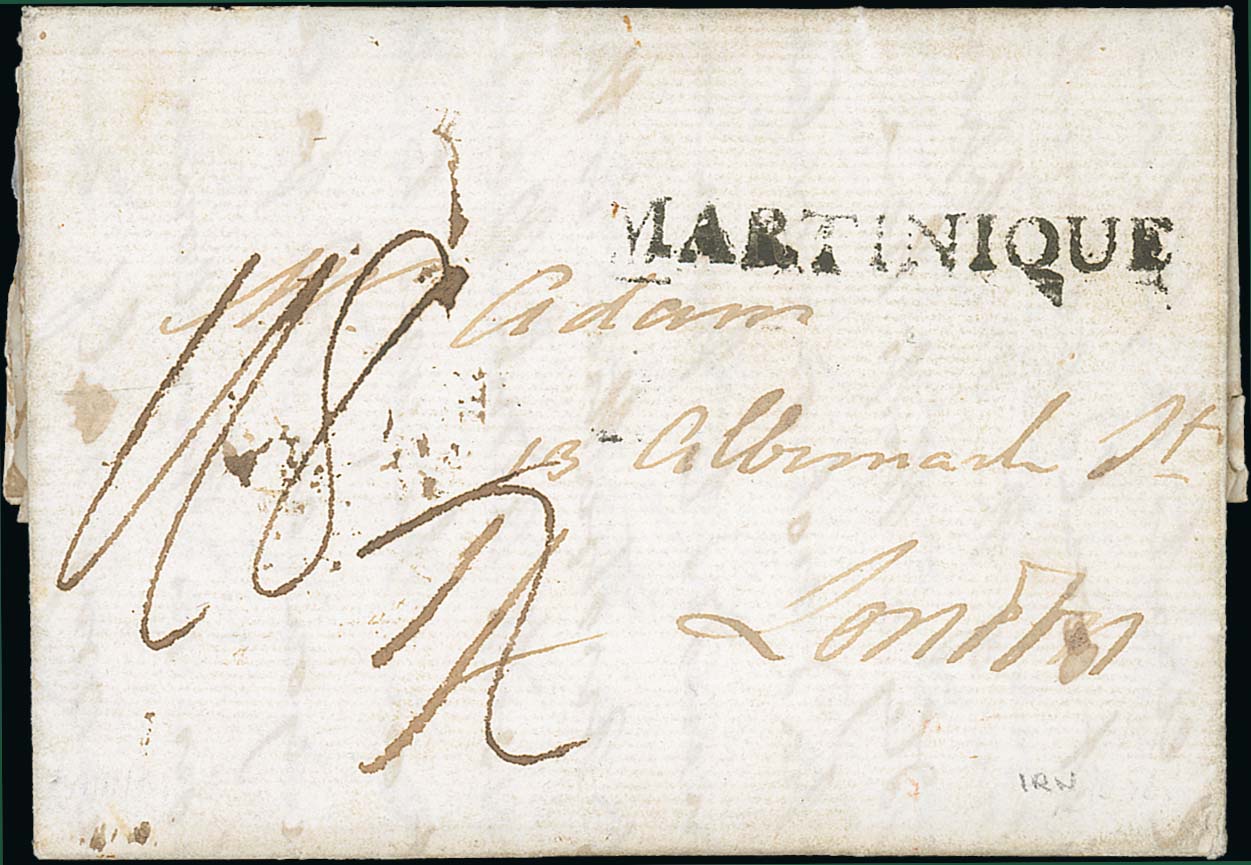 MARTINIQUE
Adam
13 Albemarle St
London
IRN